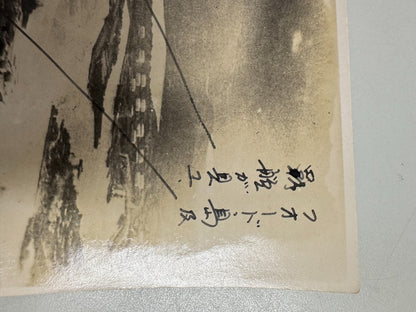 フオード島及
艦が見ユ